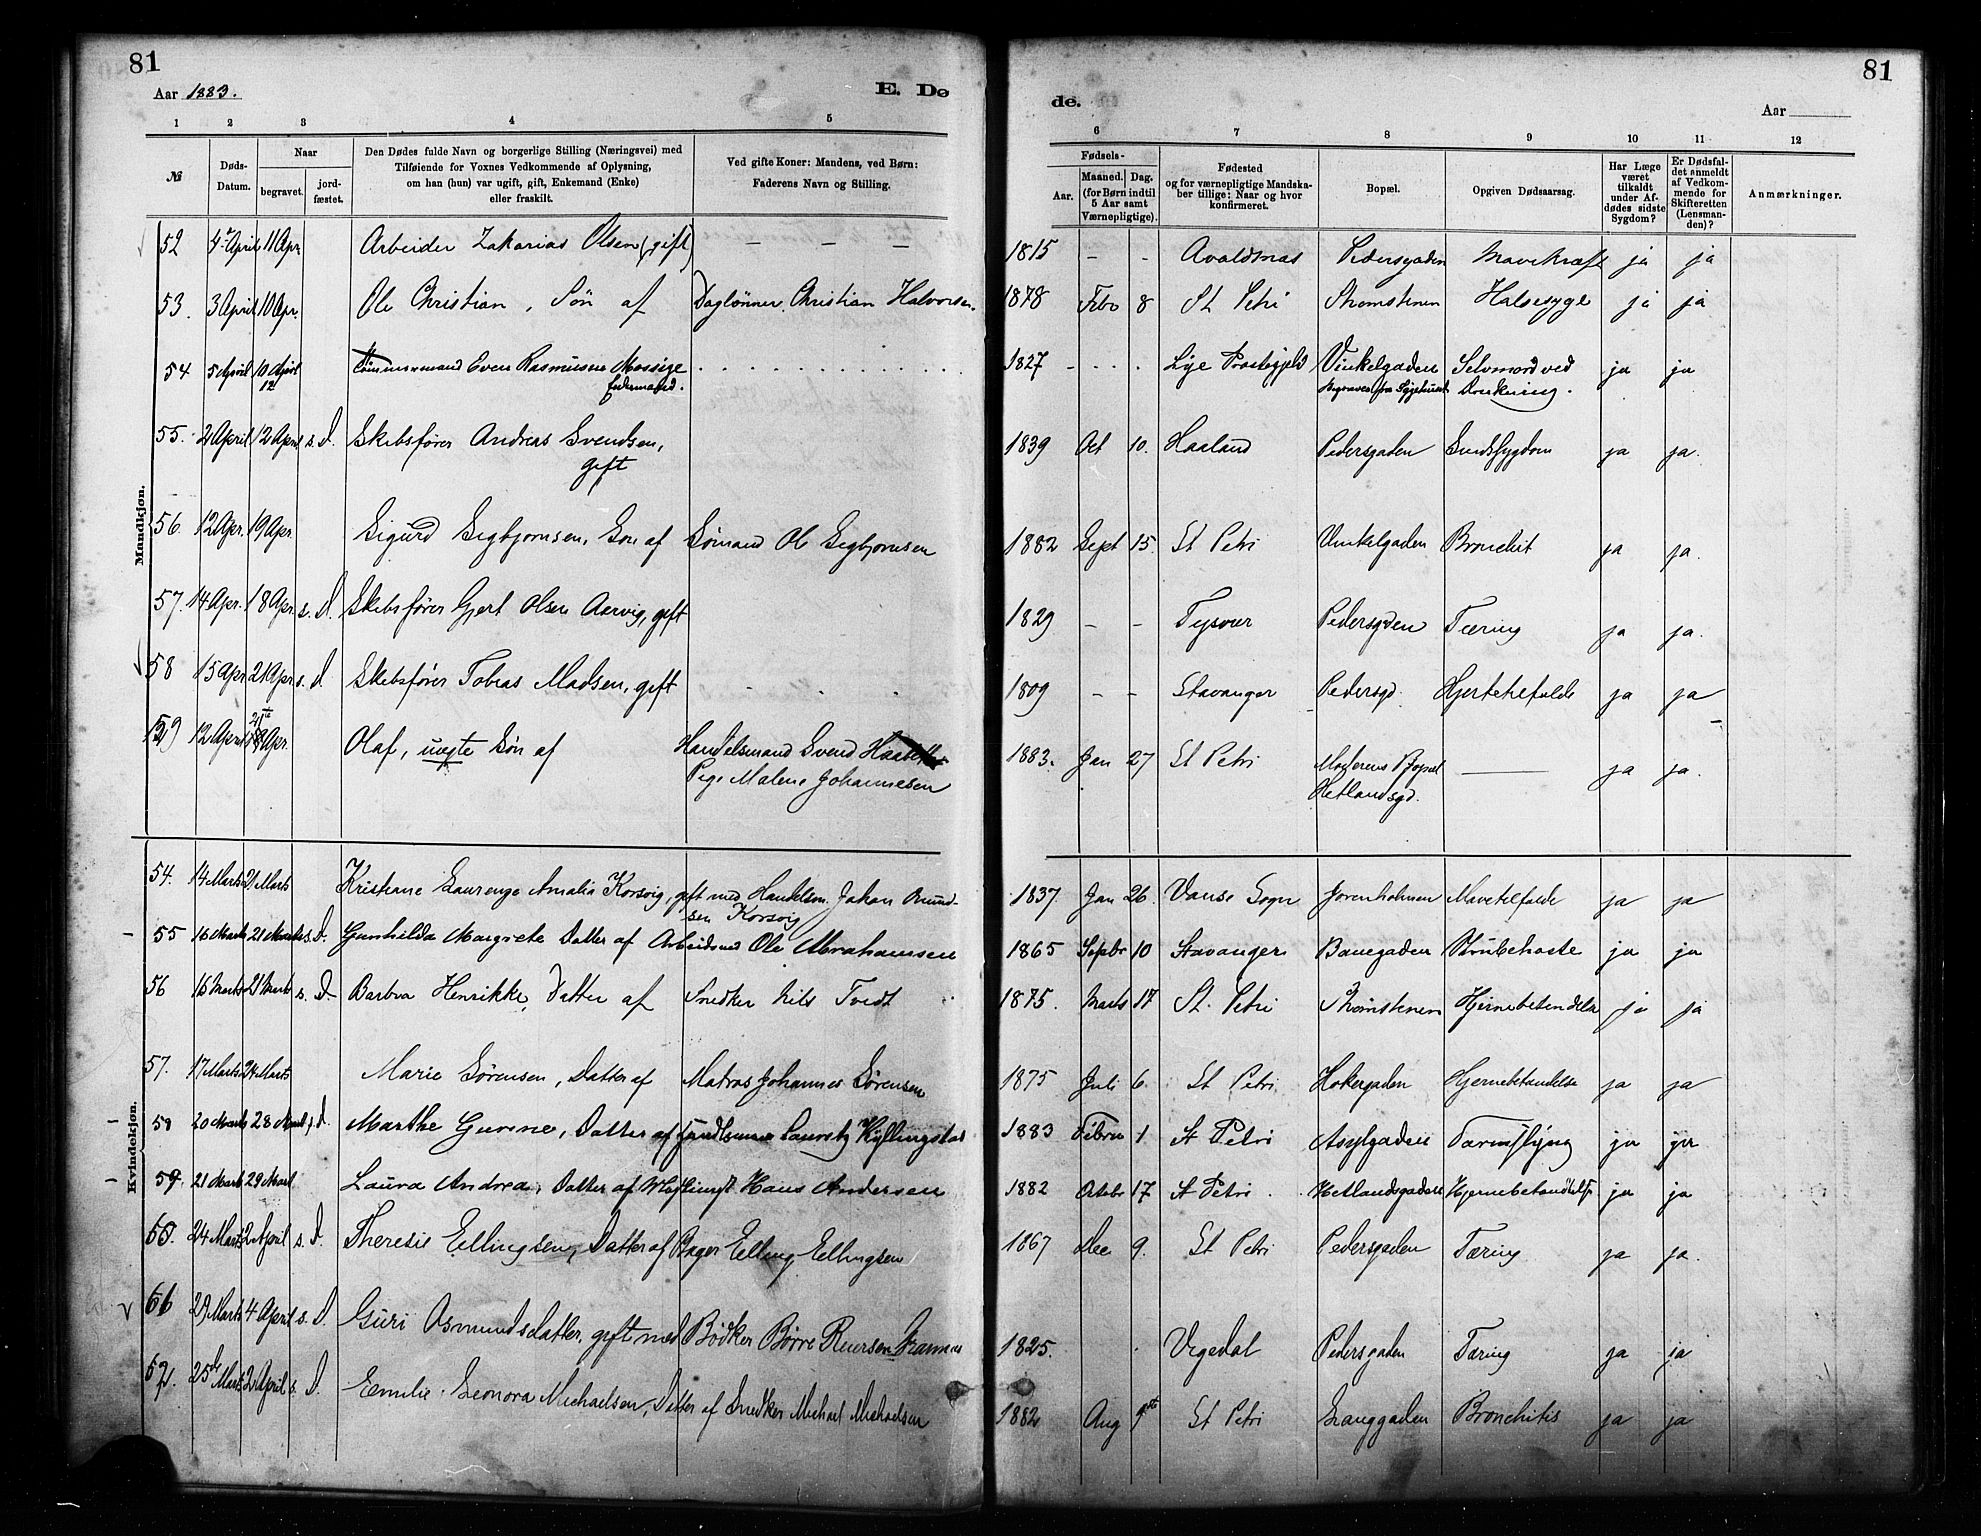 81
81
Aar 1883.
E. Dø
de.
Aar
1 2 3 4 5
6 7 8 9 10 11 12
№
Døds-Datum.
Naar
begravet.
jordfæstet.
Den Dødes fulde Navn og borgerlige Stilling (Næringsvei) med
Tilføiende for Voxnes Vedkommende af Oplysning,
om han (hun) var ugift, gift, Enkemand (Enke)
eller fraskilt.
Ved gifte Koner: Mandens, ved Børn:
Faderens Navn og Stilling.
Fødsels-
Aar.
Maaned. Dag.
(for Børn indtil
5 Aar samt
Værnepligtige).
Fødested
og for værnepligtige Mandska-
ber tillige: Naar og hvor
konfirmeret.
Bopæl.
Opgiven Dødsaarsag.
Har Læge
været
tilkaldt
under Af-
dødes sidste
Sygdom?
Er Dødsfal-
det anmeldt
af Vedkom-
mende for
Skifteretten
(Lensman-
den)?
Anmærkninger.
Mandkjøn.
52 4 April 11 Apr. Arbeider Zakarias Olsen (gift) – – – 1815 – – Avaldsnæs Pedersgaden Mavekræft ja ja
53. 3 April 10 Apr. Ole Christian, Søn af Daglønner Christian Halvorsen. 1878 Febr 8 St Petri Strømstenen Halsesyge ja ja
54 5 April 10 April 12 Tømmermand Even Rasmusen Mossige 1827 Lye Præstegjeld Vinkelgaden Selvmord ved ja ja
Enkemand. Begraves fra Sygehuset Drukning.
55. 2 April 12 April s. D. Skibsfører Andreas Svendsen, 1839 Oct 10. Haaland Pedersgaden Sindssygdom ja ja.
gift
56 12 Apr. 19 Apr. Sigurd Segbjornsen, Søn af Sømand Ole Segbjornsen 1882 Sept 15. St Petri Vinkelgaden Bronchit ja ja.
57. 14 Apr. 18 Apr. s. D. Skibsfører Gjert Olsen Aarvig, gift 1829 – – Tysvær Pedersgden Tæring ja ja.
58 15 Apr 21 Apr s. d Skibsfører Tobias Madsen, gift 1809 – – Stavanger Pedersgd. Hjertetilfælde ja ja
59 12 April Apr. Olaf, uægte Søn af Handelsmand Svend 1883. Jan 27 St Petri Moderens Bopæl — ja ja.
Pige Malene Johannesen Hetlandsgd.
Kvindekjøn.
54. 14 Marts 21 Marts Kristiane Laurenze Amalia Korsvig, gift med Handelsm. Johan Omund- 1837. Jan 26. Vanse Sogn Jorenholmen Mavetilfælde ja ja
sen Korsvig
55 16 Marts 21 Marts s. D. Gunhilda Margrete Datter af Arbeidsmd Ole Abrahamsen 1865 Septbr 10 Stavanger Banegaden Strubehoste ja ja
56 16 Marts 21 Marts s. D. Barbra Henrikke, Datter af Snedker Nils Tvedt 1875. Marts 17 St. Petri Strømstenen Hjernebetændelse ja ja
57. 17 Marts 24 Marts Marie Sørensen, Datter af Matros Johannes Sørensen 1875 Juli 6. St Petri Hokergaden Hjernebetændelse ja ja
58 20 Marts 28 Marts s. D. Marthe Gurine, Datter af Lauretz Kyllingstad 1883 Febru 1 St Petri Asylgaden ja ja
59. 21 Marts 29 Mart Laura Andrea, Datter af Hans Andersen 1882 Octobr 17 St Petri Hetlandsgaden Hjernebetændelse ja ja
60. 24 Marts 2 April s. D. Theresie Ellingsen, Datter af Bager Elling Ellingsen 1867 Dec 9. St Petri Pedersgaden Tæring ja ja.
61 29 Marts 4 April s. D. Guri Asmundsdatter, gift med Bødker Børre Reiersen 1825. Vegedal Pedersgaden Tæring ja ja
62. 25de Marts 2 April s. D. Emilie Leonora Michaelsen, Datter af Snedker Michael Michaelsen 1882 Aug 1ste St Petri Langgaden Bronchitis ja ja